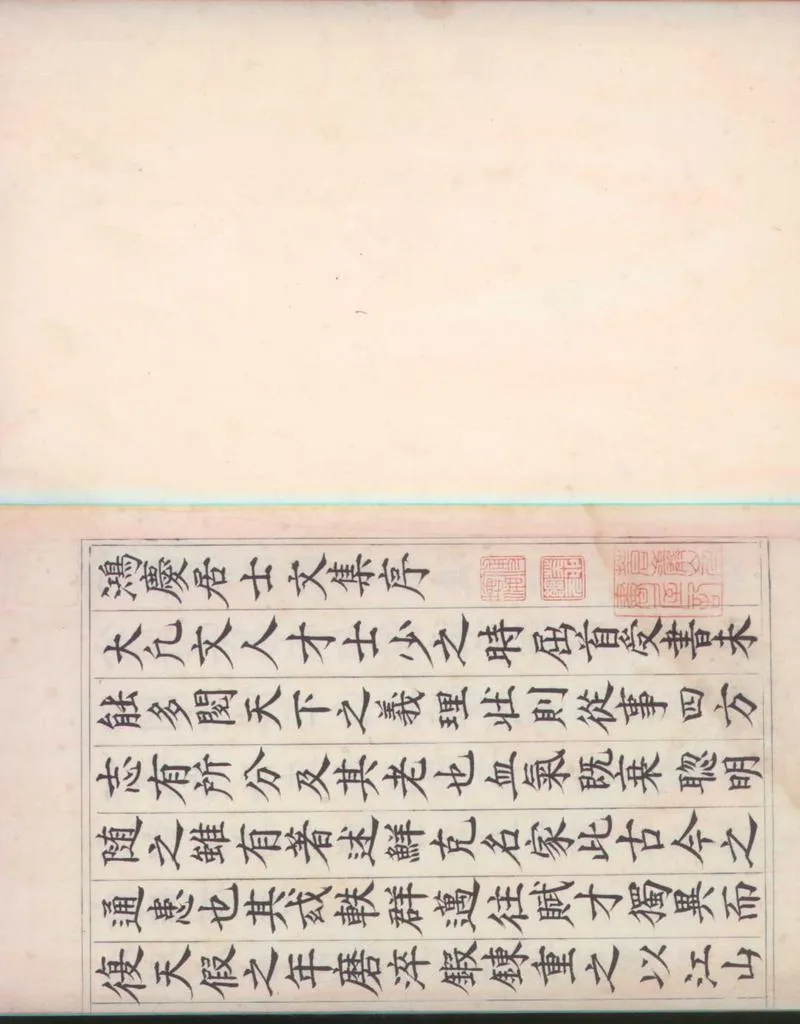 鴻慶居士文集序
大凢文人才士少之時屈首受書未
能多閱天下之義理壯則從事四方
志有所分及其老也血氣既衰聰明
随之雖有著述鮮克名家此古今之
通患也其或軼群邁往賦才獨異而
復天假之年磨淬鍛鍊重之以江山